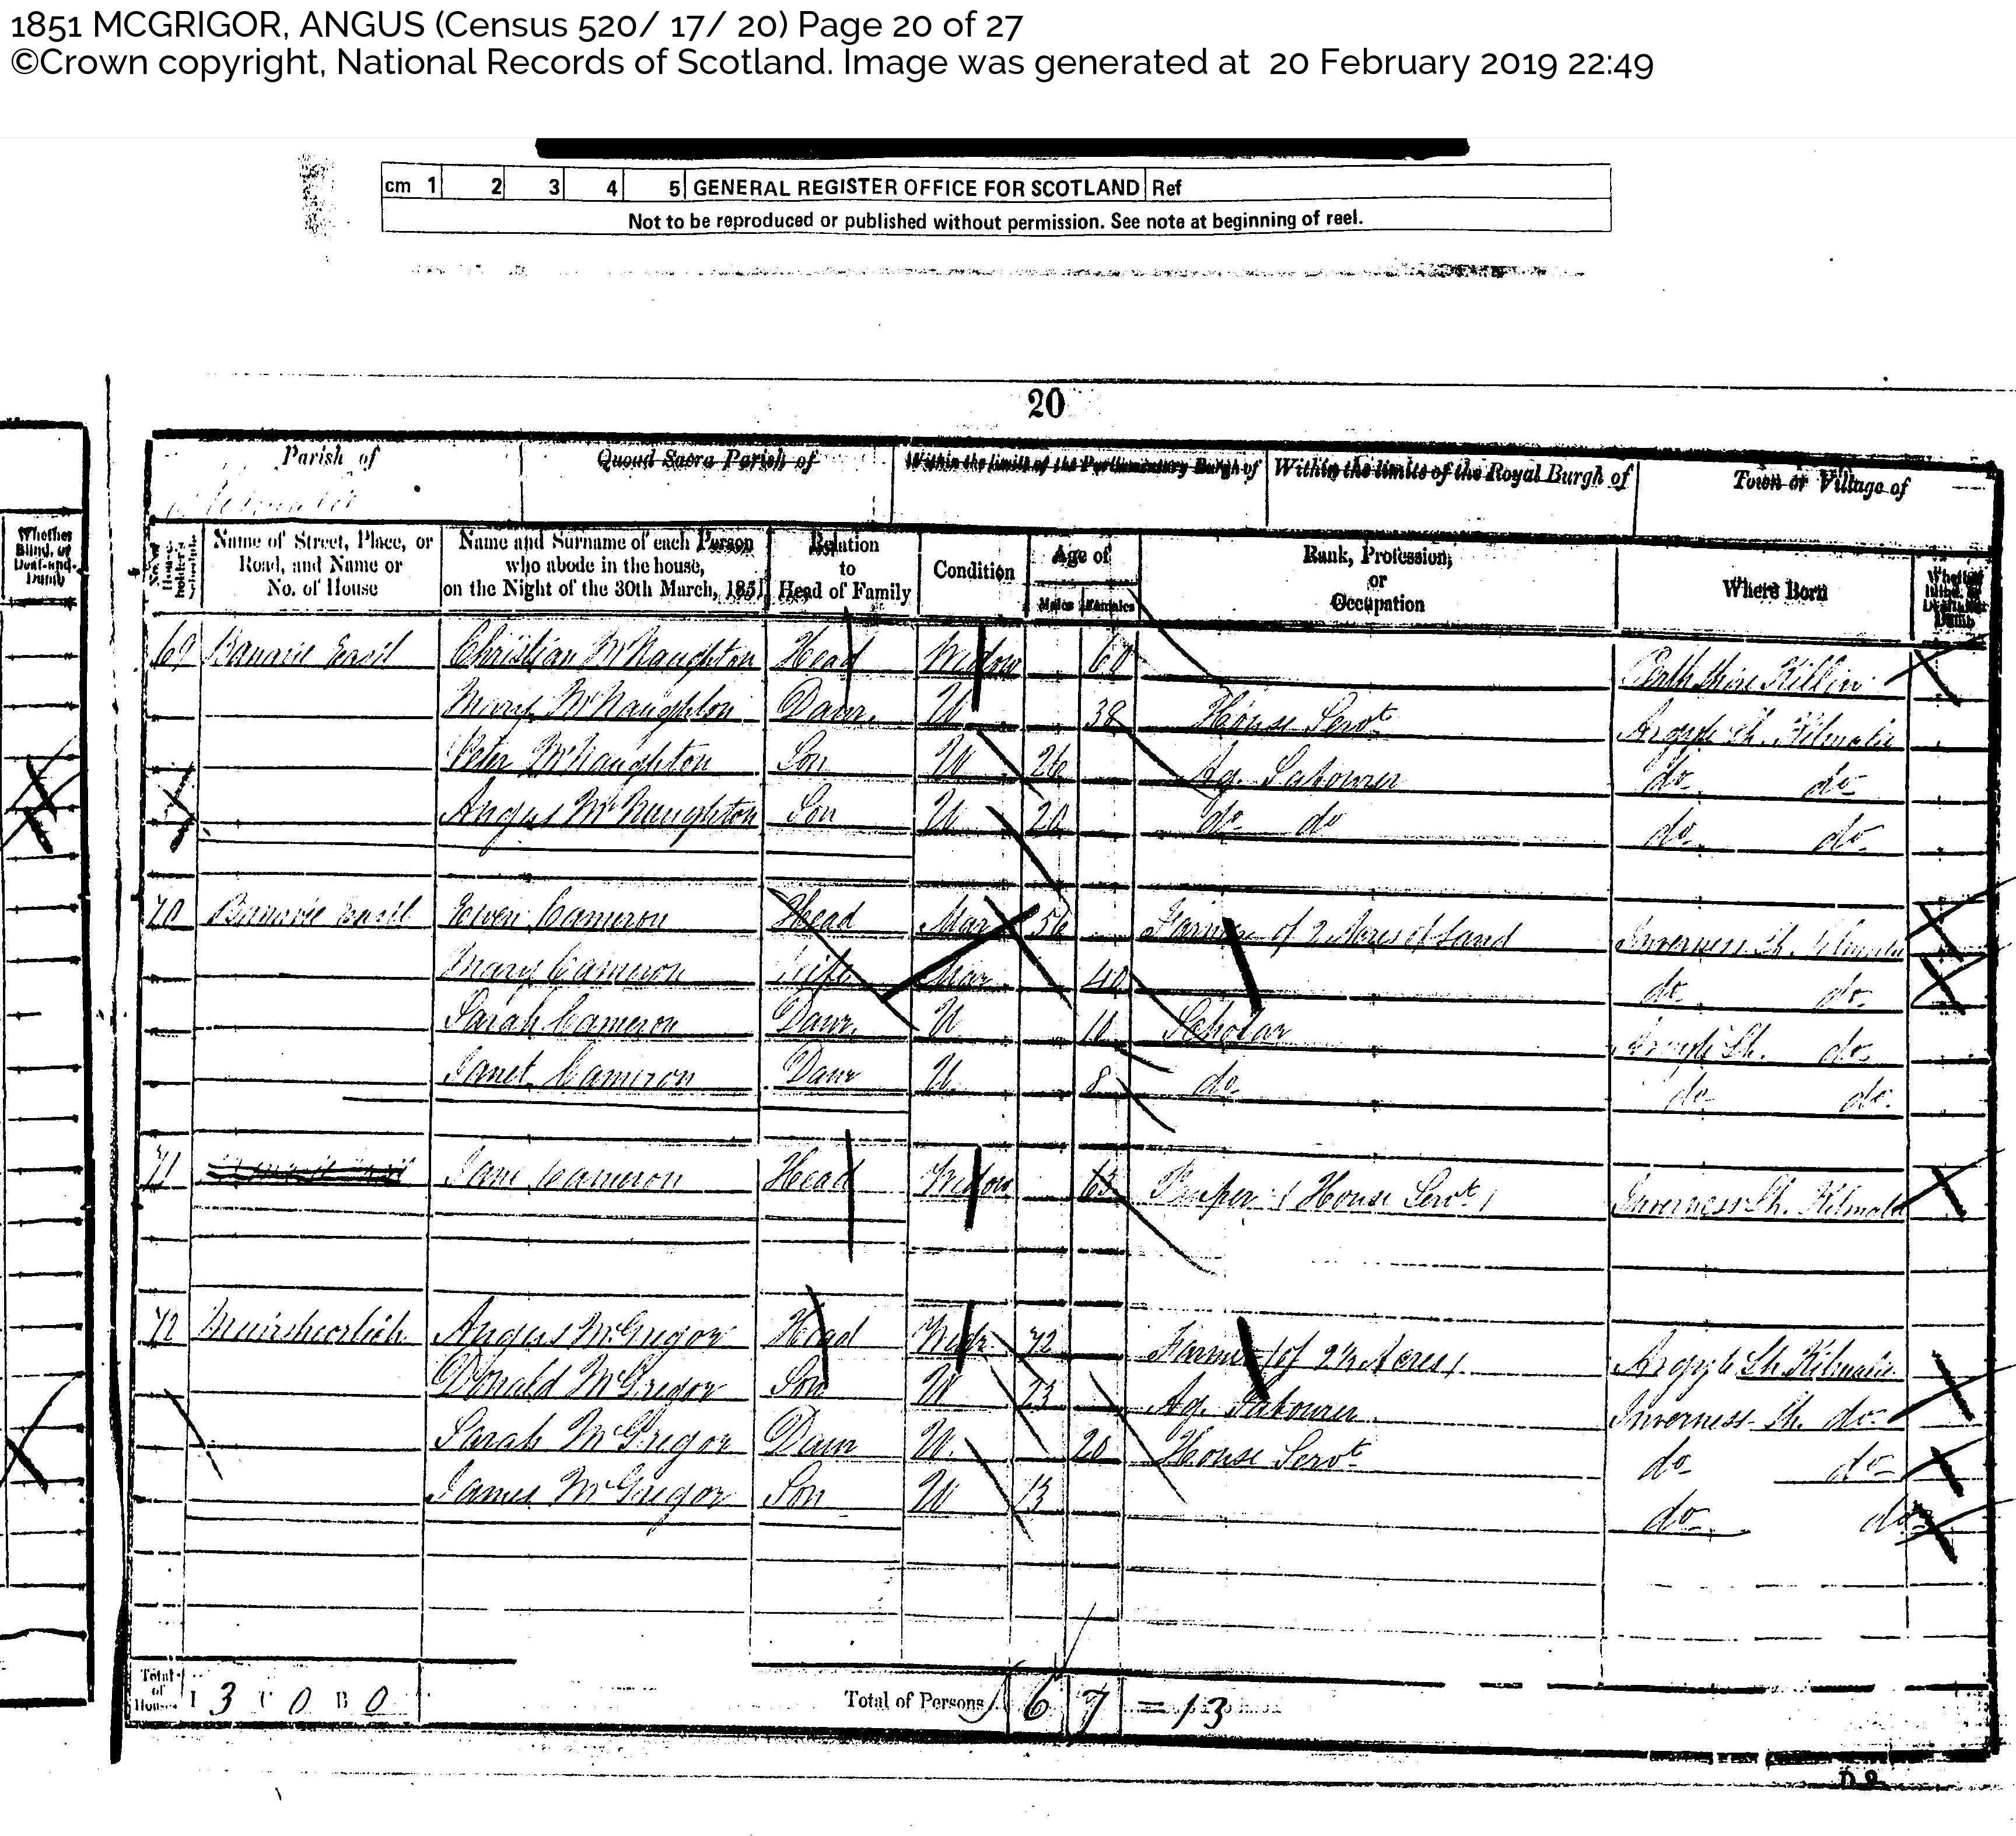 1851 MCGRIGOR, ANGUS (Census 520/ 17/ 20) Page 20 of 27
©Crown copyright, National Records of Scotland. Image was generated at 20 February 2019 22:49
cm 1 2 3 4 5 GENERAL REGISTER OFFICE FOR SCOTLAND Ref
Not to be reproduced or published without permission. See note at beginning of reel.
20
Parish of Quoad Sacra Parish of Within the limits of the Parliamentary Burgh of Within the limits of the Royal Burgh of Town or Village of
Whether Blind, or Deaf-and-Dumb
No. of House-holder's Schedule Name of Street, Place, or Road, and Name or No. of House Name and Surname of each Person who abode in the house, on the Night of the 30th March, 1851 Relation to Head of Family Condition Age of Males Females Rank, Profession, or Occupation Where Born Whether Blind, or Deaf-and-Dumb
69 Banavie Christian McNaughton Head Widow 60 Perthshire Killin
Mary McNaughton Daur. U 38 House Servt Argyle Sh. Kilmalie
Peter McNaughton Son U 26 Ag. Labourer do do
Angus McNaughton Son U 20 do do do do
70 Banavie Ewen Cameron Head Mar 56 Farmer of 2 Acres of Land Inverness Sh.
Mary Cameron Wife Mar 40 do do
Sarah Cameron Daur. U Scholar Argyle Sh. do
Janet Cameron Daur U 8 do do do
71 Jane Cameron Head Widow 63 Pauper (House Servt) Inverness Sh. Kilmalie
72 Muirshearlich Angus McGregor Head Widr 72 Farmer (of 2½ Acres) Argyle Sh. Kilmalie
Donald McGregor Son U 23 Ag. Labourer Inverness Sh. do
Sarah McGregor Daur U. 20 House Servt do do
James McGregor Son U 13 do do
Total of Houses I 3 U 0 B 0 Total of Persons 6 7 = 13